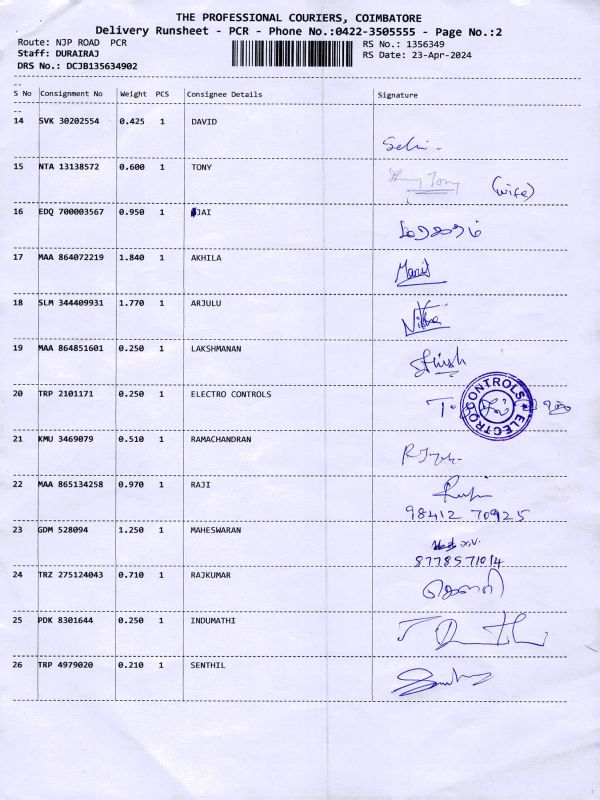 THE PROFESSIONAL COURIERS, COIMBATORE
Delivery Runsheet - PCR - Phone No.:0422-3505555 - Page No.:2
Route: NJP ROAD PCR
RS No.: 1356349
Staff: DURAIRAJ
RS Date: 23-Apr-2024
DRS No.: DCJB135634902
S No Consignment No Weight PCS Consignee Details Signature
14 SVK 30202554 0.425 1 DAVID
Selvi -
15 NTA 13138572 0.600 1 TONY
Tony (wife)
16 EDQ 700003567 0.950 1 JAI
17 MAA 864072219 1.840 1 AKHILA
18 SLM 344409931 1.770 1 ARJULU
19 MAA 864851601 0.250 1 LAKSHMANAN
20 TRP 2101171 0.250 1 ELECTRO CONTROLS
ELECTRO CONTROLS
21 KMU 3469079 0.510 1 RAMACHANDRAN
22 MAA 865134258 0.970 1 RAJI
98412 70925
23 GDM 528094 1.250 1 MAHESWARAN
8778571014
24 TRZ 275124043 0.710 1 RAJKUMAR
25 PDK 8301644 0.250 1 INDUMATHI
26 TRP 4979020 0.210 1 SENTHIL